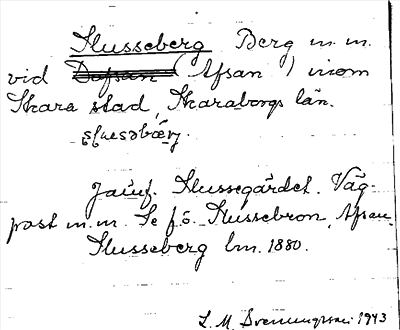 Slusseberg Berg m.m.
vid Dofsan (Afsan) inom
Skara stad, Skaraborgs län.
Jämf. Slussegärdet. Väg-
post m.m. Se fö. Slussebron, Afsan.
Slusseberg lm. 1880.
L. M. Svenungsson 1943